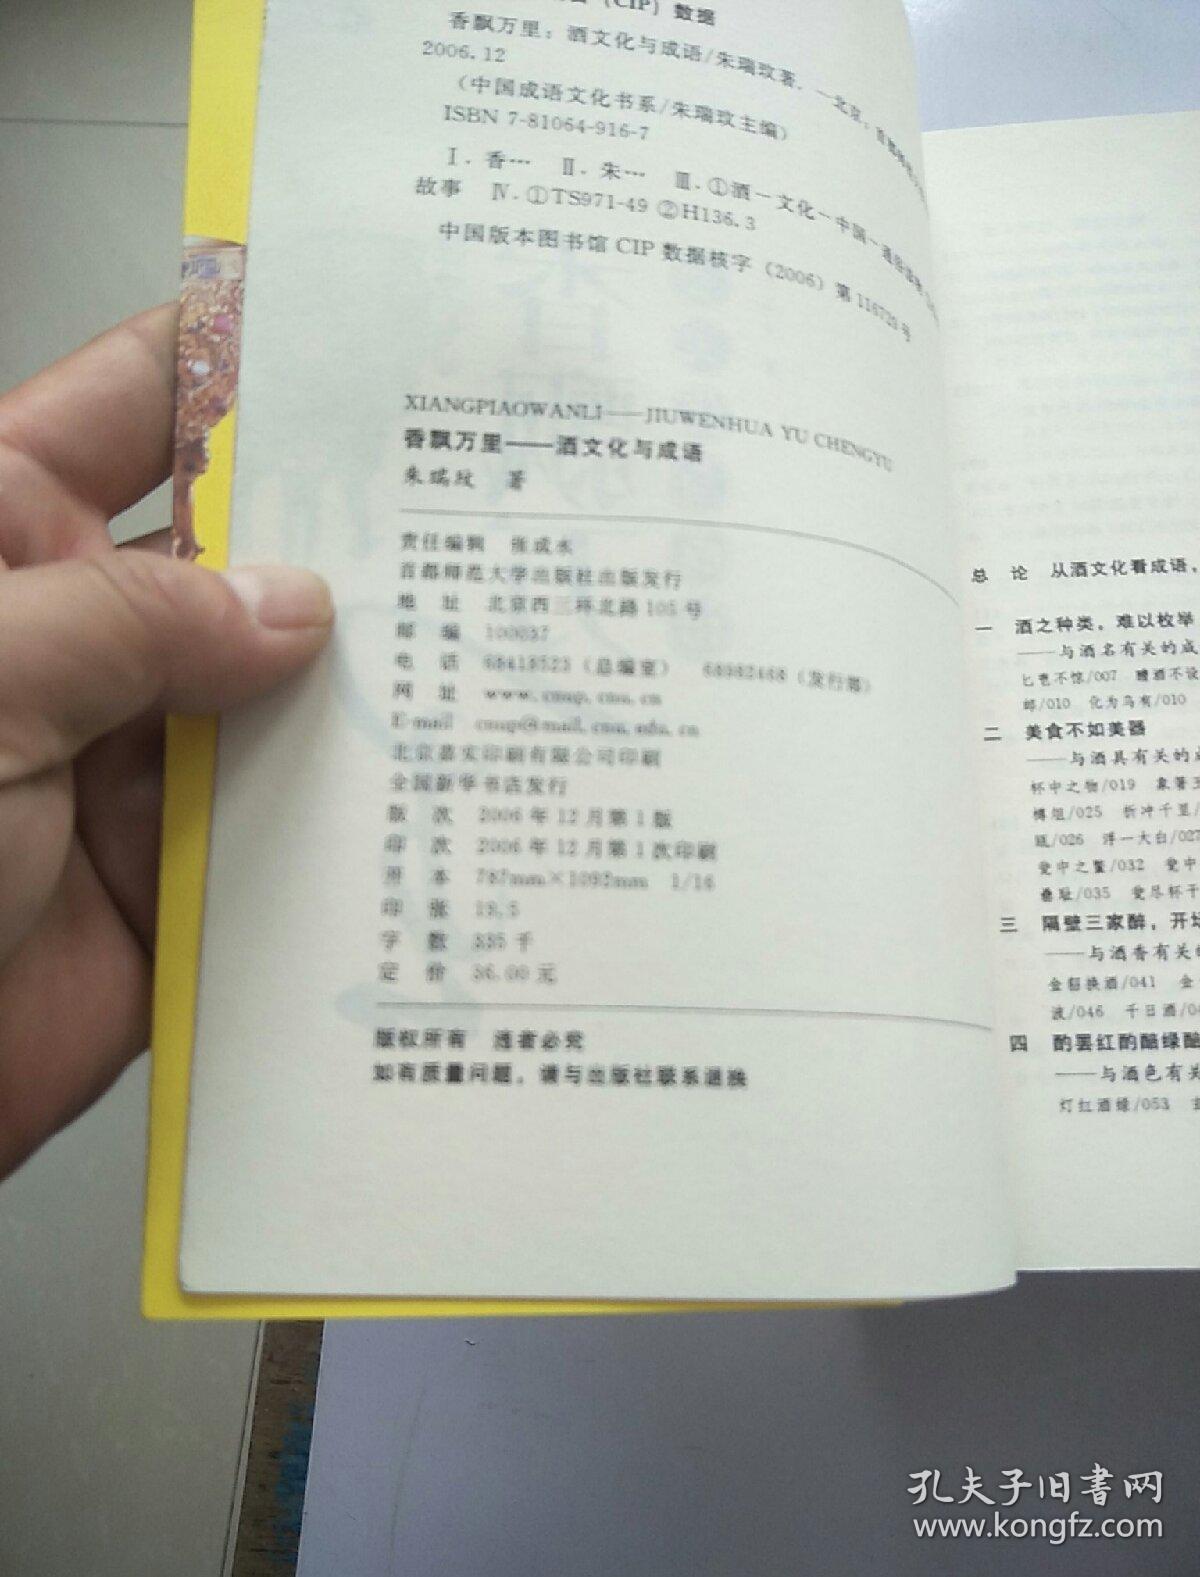 (CIP) 数据
香飘万里：酒文化与成语/朱瑞玟著．—北京：首都师范大学
2006.12
（中国成语文化书系/朱瑞玟主编）
ISBN 7-81064-916-7
Ⅰ．香…　Ⅱ．朱…　Ⅲ．①酒－文化－中国－通俗读物
故事　Ⅳ．①TS971-49 ②H136.3
中国版本图书馆 CIP 数据核字（2006）第 116729 号
XIANGPIAOWANLI——JIUWENHUA YU CHENGYU
香飘万里——酒文化与成语
朱瑞玟　著
责任编辑　张成水
首都师范大学出版社出版发行
地　址　北京西三环北路 105 号
邮　编　100037
电　话　68418523（总编室）　68982468（发行部）
网　址　www.cnup.cnu.cn
E-mail　cnup@mail.cnu.edu.cn
北京嘉实印刷有限公司印刷
全国新华书店发行
版　次　2006 年 12 月第 1 版
印　次　2006 年 12 月第 1 次印刷
开　本　787mm×1092mm　1/16
印　张　19.5
字　数　335 千
定　价　36.00 元
版权所有　违者必究
如有质量问题，请与出版社联系退换
总　论　从酒文化看成语，
一　酒之种类，难以枚举
——与酒名有关的成
匕鬯不惊/007　醴酒不设
邮/010　化为乌有/010
二　美食不如美器
——与酒具有关的
杯中之物/019　象箸玉
樽俎/025　折冲千里/
瓿/026　浮一大白/027
瓮中之鳖/032　瓮中
罍耻/035　瓮尽杯干
三　隔壁三家醉，开坛
——与酒香有关的
金貂换酒/041　金
波/046　千日酒/04
四　酌罢红酌醅绿酌
——与酒色有关
灯红酒绿/053
孔夫子旧书网
www.kongfz.com